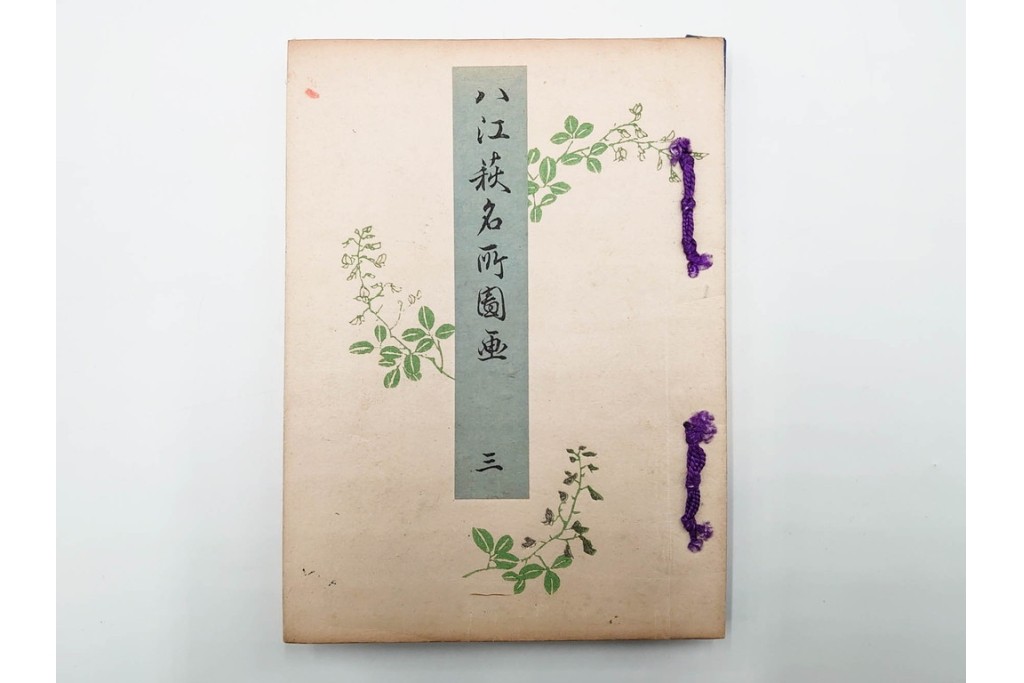 八江萩名所圖画
三